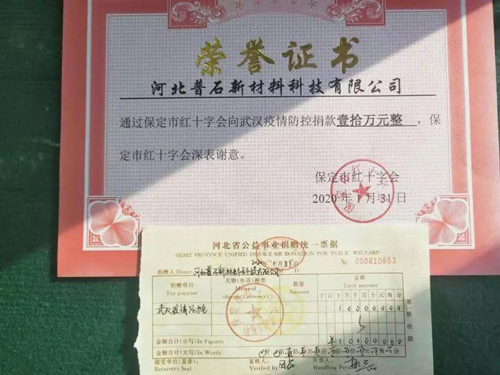 荣誉证书
河北普石新材料科技有限公司
通过保定市红十字会向武汉疫情防控捐款壹拾万元整，保
定市红十字会深表谢意。
保定市红十字会
2020年1月31日
河北省公益事业捐赠统一票据
HEBEI PROVINCE UNIFIED INVOICE FOR DONATION FOR PUBLIC WELFARE
No 000610653
捐赠人 Donor 河北普石新材料科技有限公司
捐赠项目
For purpose
实物(外币)种类
数量
Amount
金额
Total amount
武汉疫情防控
金额合计(小写) In Figures
金额合计(大写) In Words
接受单位(盖章)
Receiver's Seal
复核人
Verified by
开票人
Handling Person